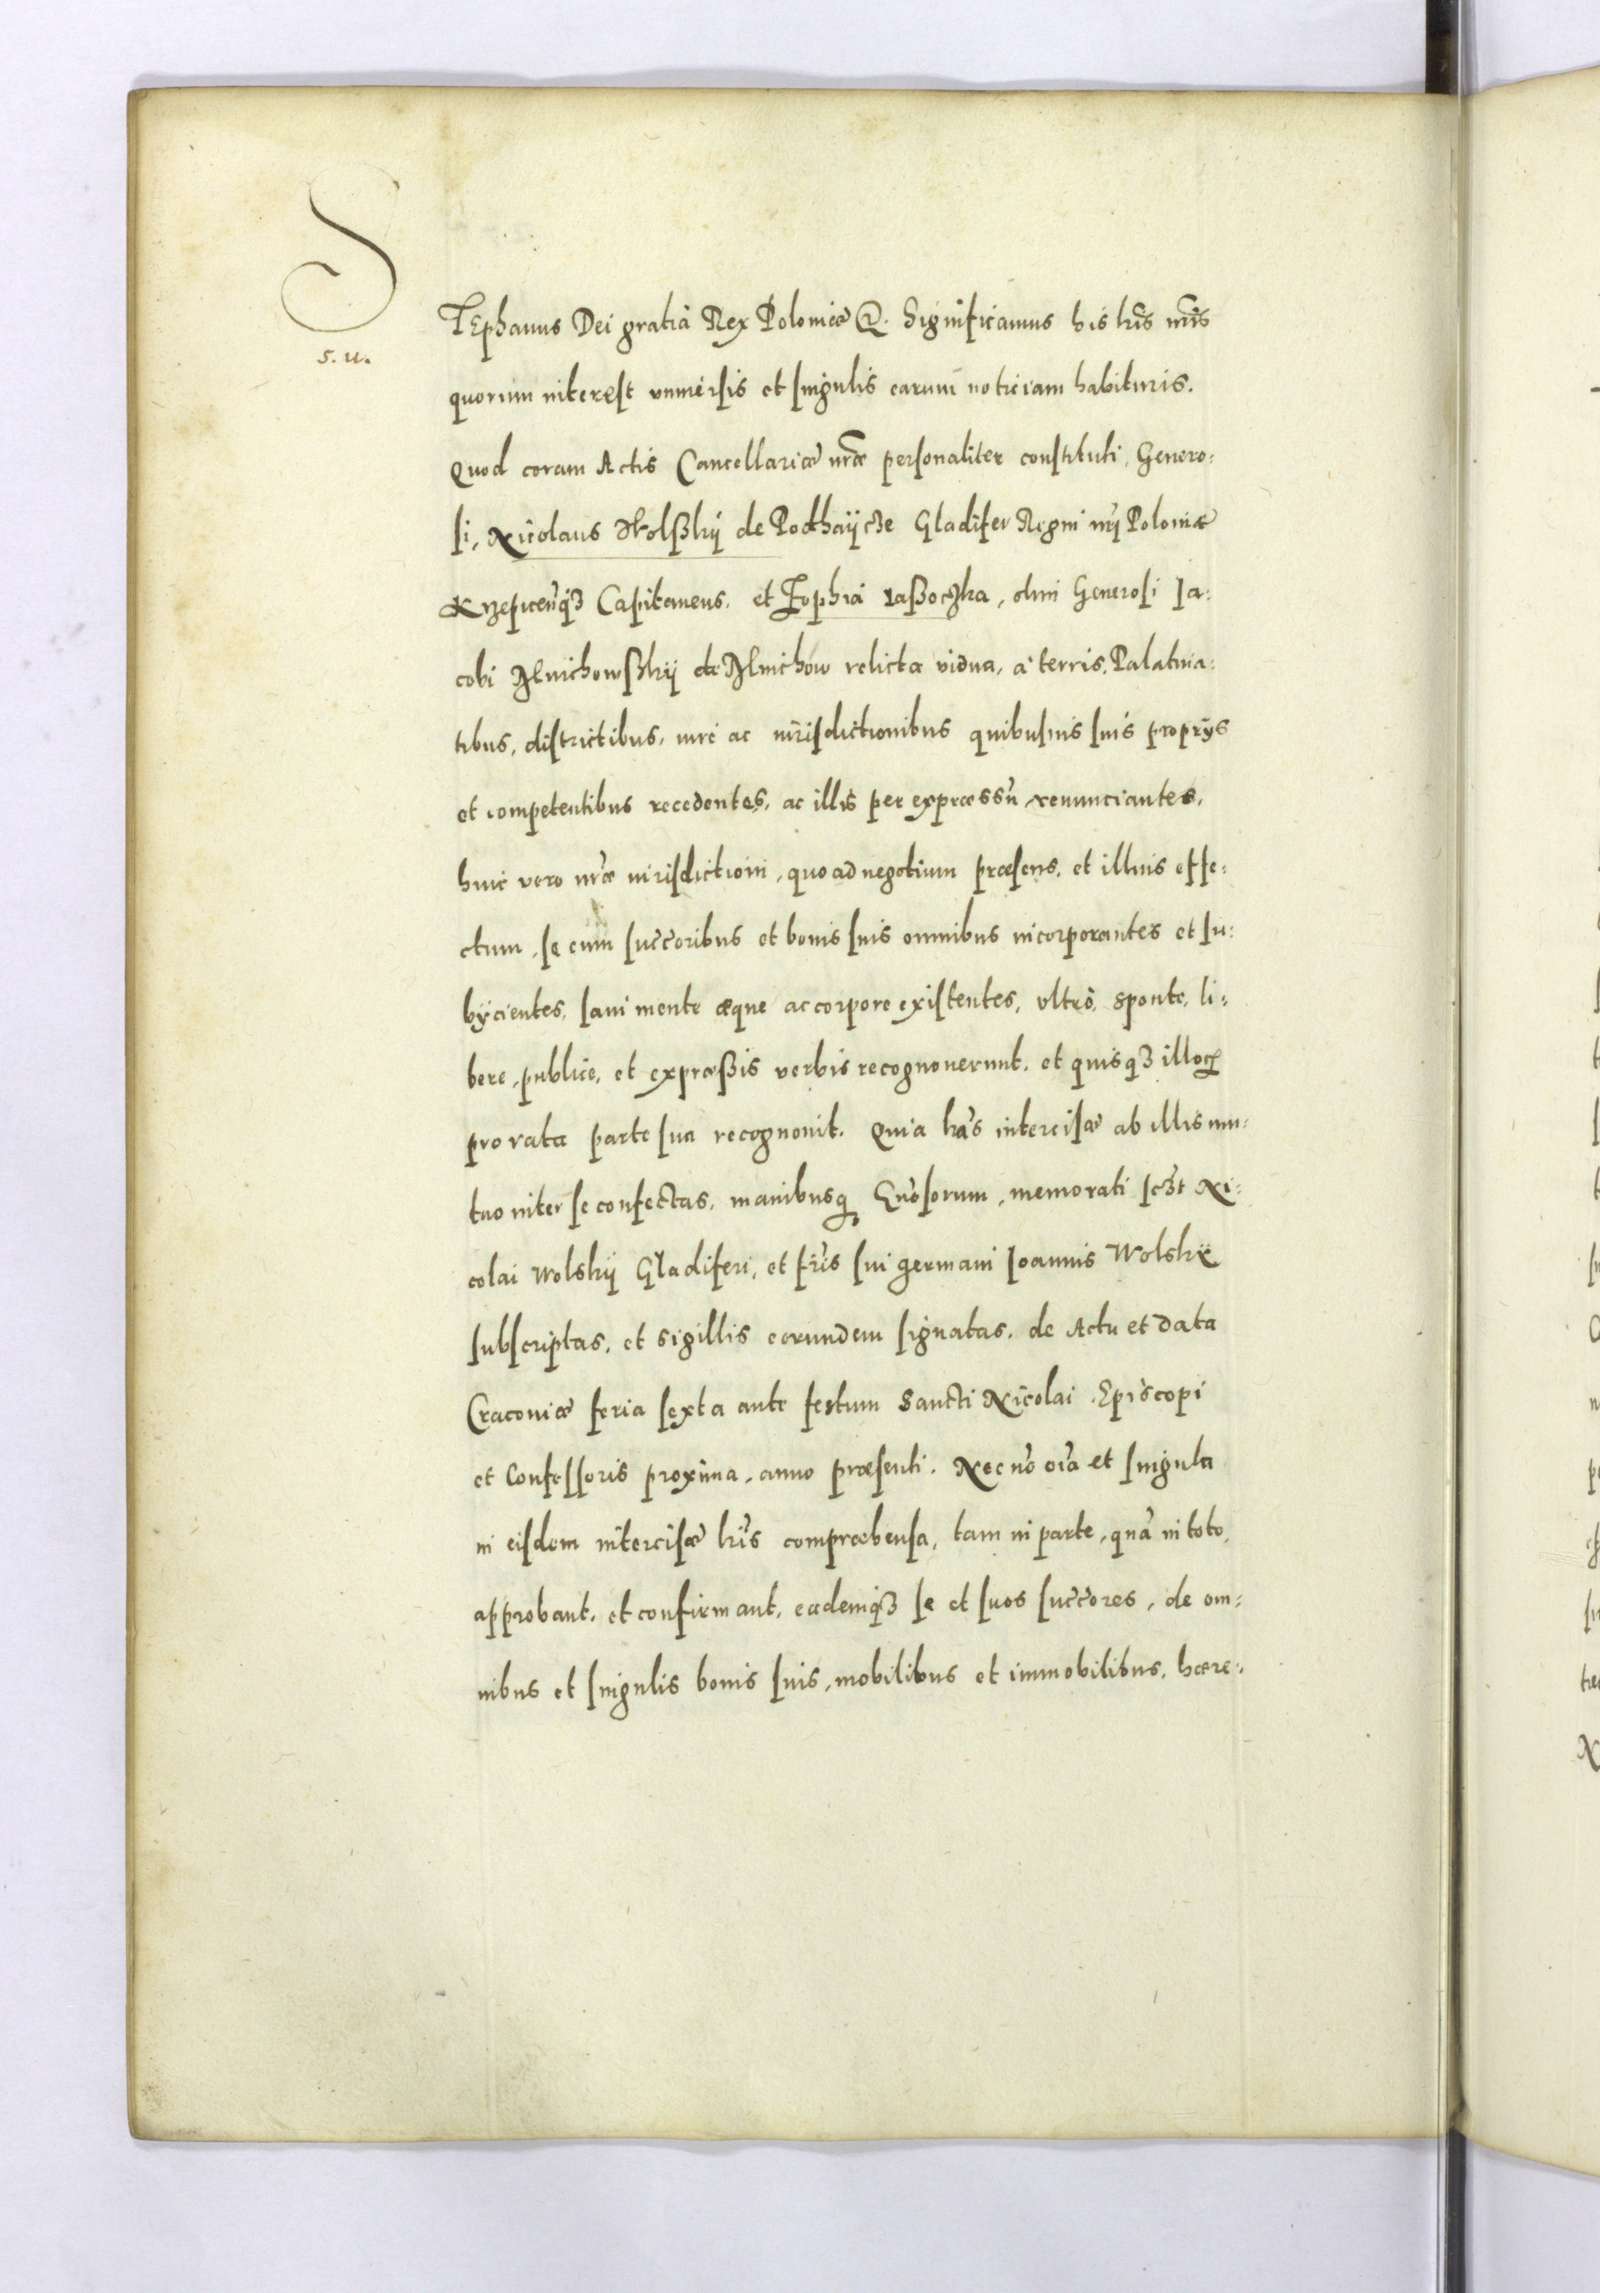 S
TEphanus Dei gratia Rex Poloniæ &. Significamus his lr̃is nr̃is
s. u.
quorum interest vniuersis et singulis earum noticiam habituris.
Quod coram Actis Cancellariæ nr̃æ personaliter constituti, Genero:
si, Nicolaus Wolßkÿ de Podhaÿcze Gladifer Regni nr̃i Poloniæ
Krzepicen̄q3 Capitaneus. et Zophia Laßoczka, olim Generosi Ia:
cobi Ilmichowßkÿ de Ilmichow relicta vidua, à terris, Palatina:
tibus, districtibus, iure ac iurisdictionibus quibusuis suis proprÿs
et competentibus recedentes, ac illis per expræssū renunciantes,
huic vero nr̃æ iurisdictioni, quo ad negotium præsens, et illius effe:
ctum, se cum succ̄oribus et bonis suis omnibus incorporantes et su:
bÿcientes, sani mente æque ac corpore existentes, vltrò, sponte, li:
bere, publice, et expræßis verbis recognouerunt, et quisq3 illoꝝ
pro rata parte sua recognouit. Quia lr̃as intercisæ ab illis mu:
tuo inter se confectas, manibusq3 Gn̄osorum, memorati sc3t Ni:
colai Wolskÿ Gladiferi, et fr̃is sui germani Ioannis Wolskÿ
subscriptas, et sigillis eorundem signatas, de Actu et data
Cracouiæ feria sexta ante festum Sancti Nicolai Episcopi
et Confessoris proxima, anno præsenti. Nec nō oīa et singula
in eisdem intercisæ lr̃is compræhensa, tam in parte, quā in toto,
approbant, et confirmant, eademq3 se et suos succ̄ores, de om:
nibus et singulis bonis suis, mobilibus et immobilibus, hære: